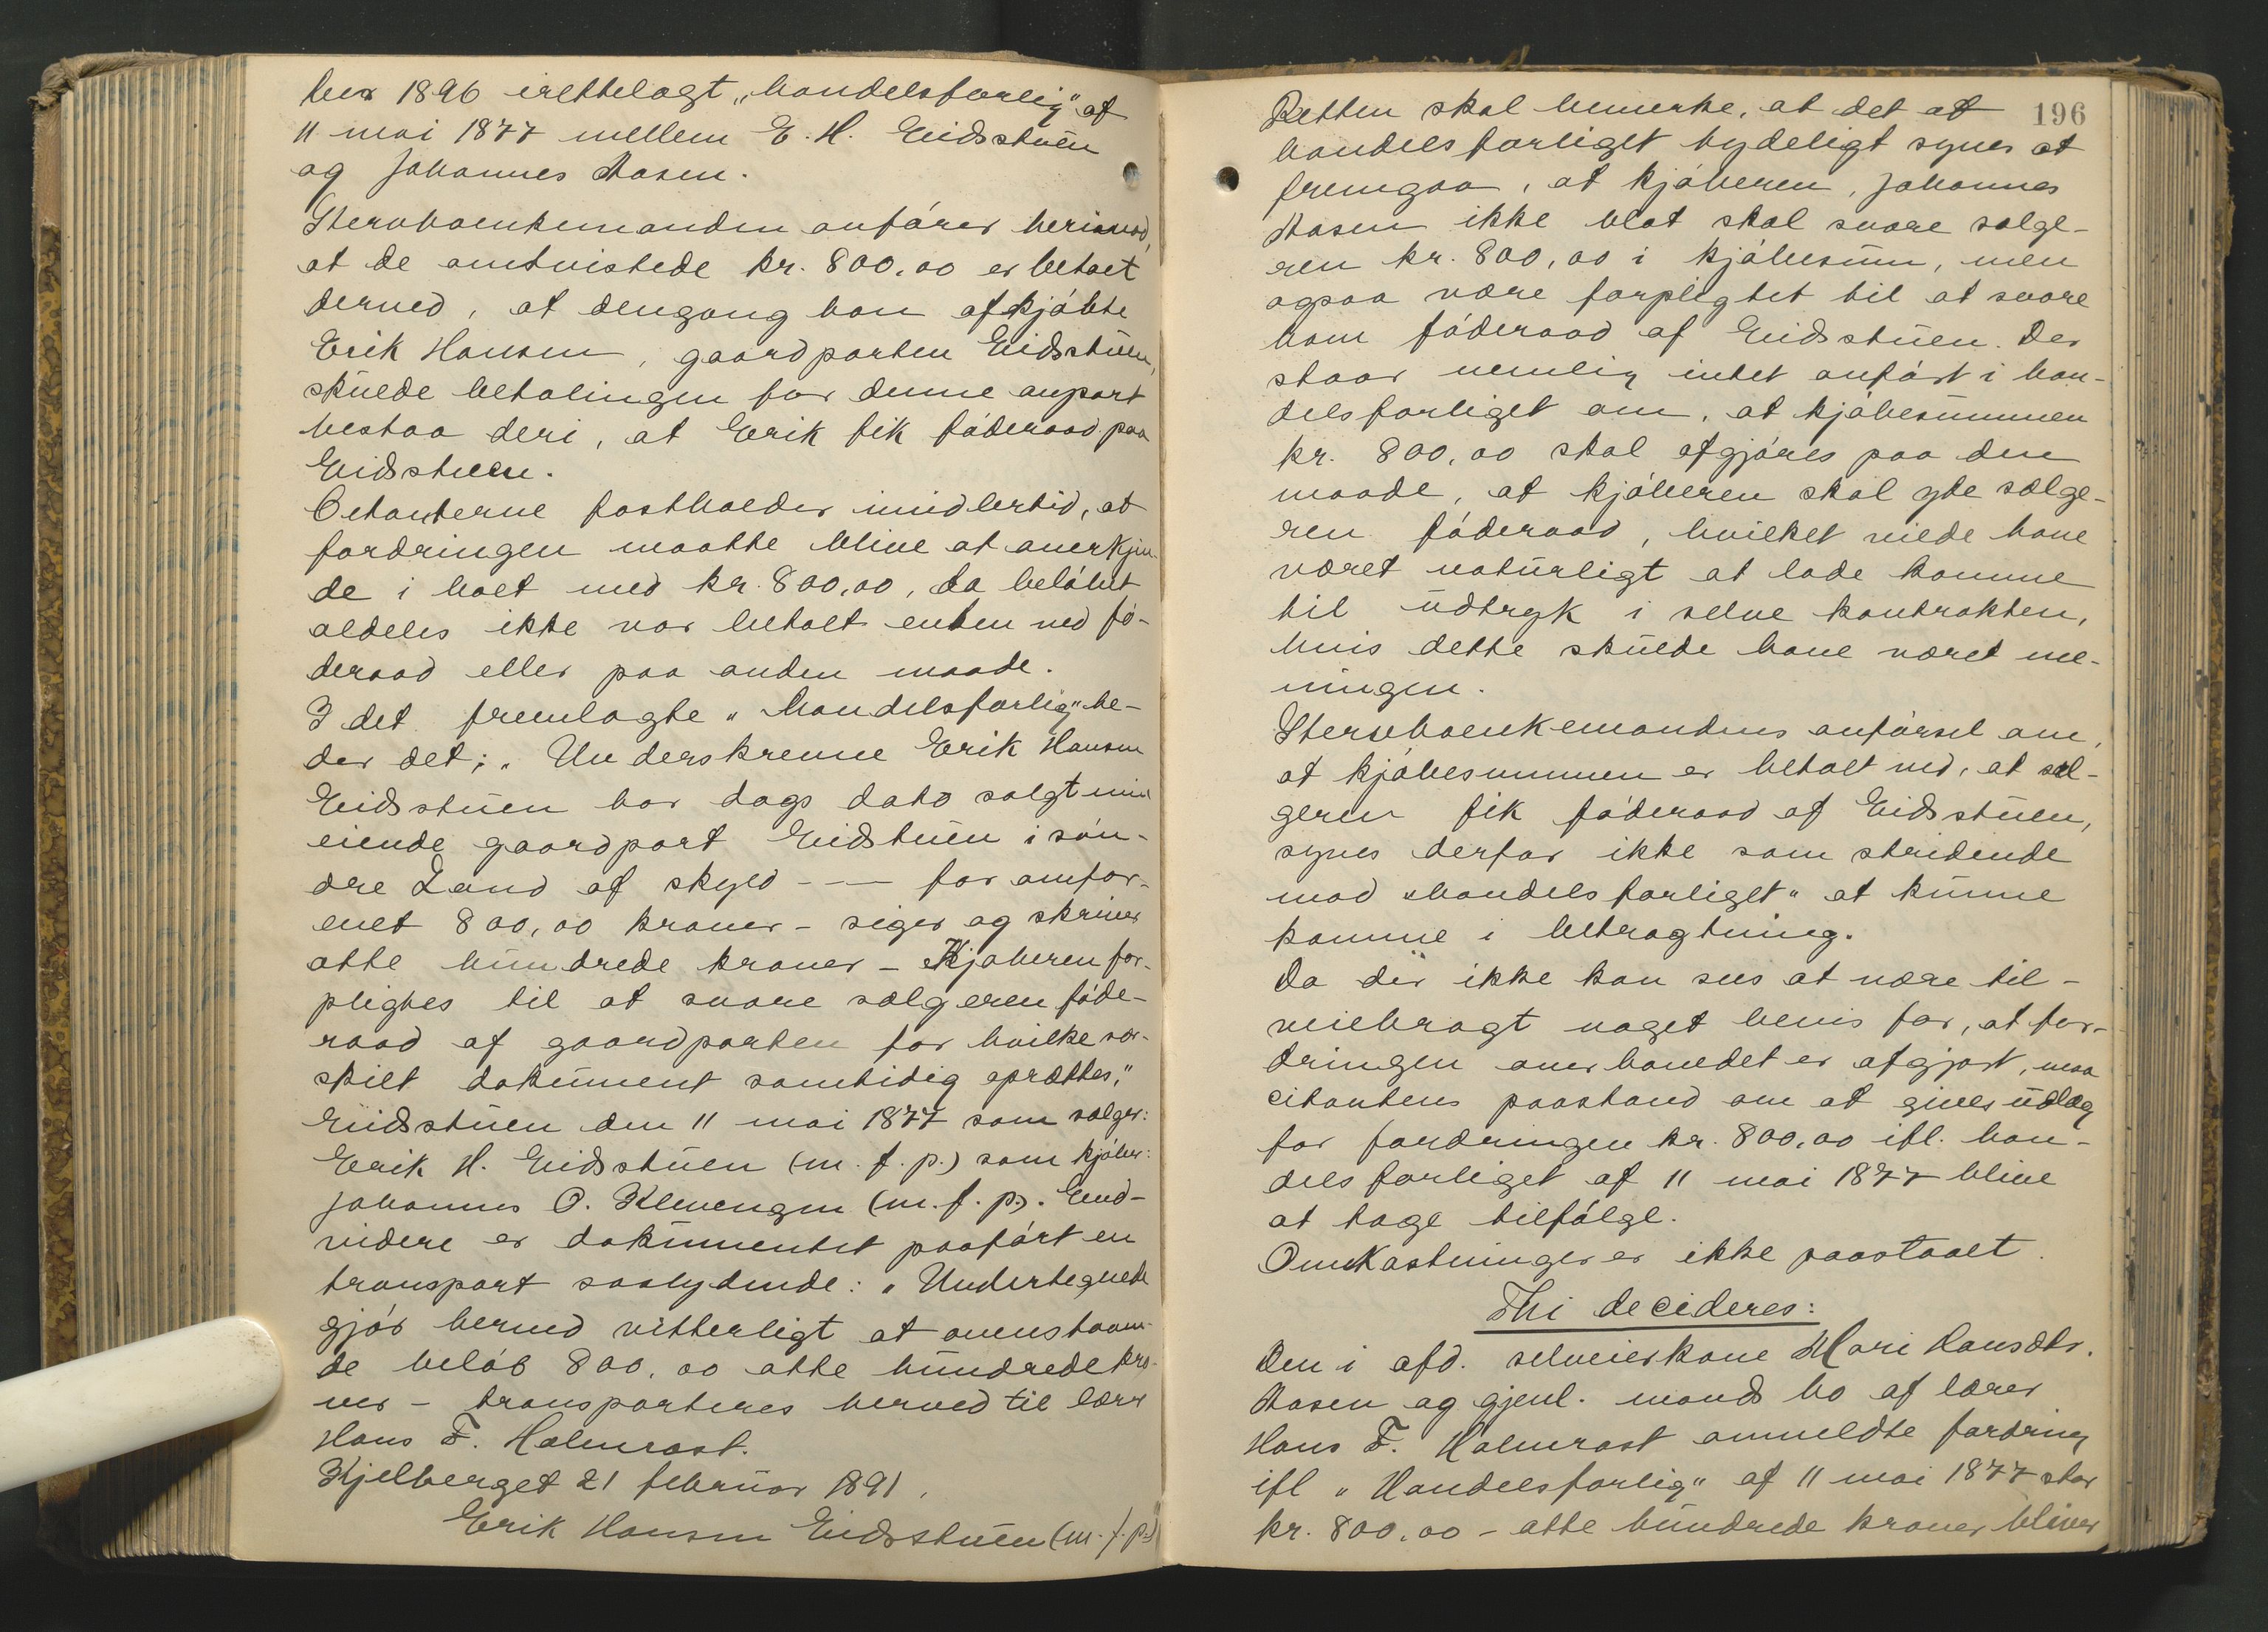 ber 1896 irettelagt „handelsforlig" af
11 mai 1877 mellem E. H. Eidsstuen
og Johannes Aasen.
Stervboenkemanden anfører herimod,
at de omtvistede kr. 800,00 er betalt
derved, at dengang han afkjøbte
Erik Hansen, gaardparten Eidsstuen,
skulde betalingen for denne anpart
bestaa deri, at Erik fik føderaad paa
Eidstuen.
Citanterne fastholder imidlertid, at
fordringen maatte blive at anerkjen-
de i boet med kr. 800,00, da beløbet
aldeles ikke var betalt enten ved fø-
deraad eller paa anden maade.
I det fremlagte „handelsforlig" he-
der det; „Underskrevne Erik Hansen
Eidsstuen har dags dato solgt min
eiende gaardpart Eidstuen i søn-
dre Land af skyld - — for omfor-
enet 800,00 kroner - siger og skriver
otte hundrede kroner - Kjøberen for-
pligtes til at svare sælgeren føde-
raad af gaardparten for hvilke sær-
skilt dokument samtidig oprættes,"
Eidsstuen den 11 mai 1877 som sælger:
Erik H. Eidsstuen (m. f. p.) som kjøber:
Johannes O. Klevengen (m. f. p.). End-
videre er dokumentet paaført en
transport saalydende: „Undertegnede
gjør herved vitterligt at ovenstaaen-
de beløb 800,00 otte hundrede kro-
ner - transporteres herved til lærer
Hans F. Holmrast.
Kjelberget 21 februar 1891.
Erik Hansen Eidsstuen (m. f. p.)"
196
Retten skal bemerke, at det af
handelsforliget tydeligt synes at
fremgaa, at kjøberen, Johannes
Aasen ikke blot skal svare sælge-
ren kr. 800,00 i kjøbesum, men
ogsaa være forpligtet til at svare
ham føderaad af Eidsstuen. Der
staar nemlig intet anført i han-
delsforliget om, at kjøbesummen
kr. 800,00 skal afgjøres paa den
maade, at kjøberen skal yde sælge-
ren føderaad, hvilket vilde have
været naturligt at lade komme
til udtryk i selve kontrakten,
hvis dette skulde have været me-
ningen.
Stervboenkemandens anførsel om,
at kjøbesummen er betalt ved, at sæl-
geren fik føderaad af Eidsstuen,
synes derfor ikke som stridende
mod „handelsforliget" at kunne
komme i betragtning.
Da der ikke kan sees at være til-
veiebragt noget bevis for, at for-
dringen overhovedet er afgjort, maa
citantens paastand om at gives udlæg
for fordringen kr. 800,00 ifl. han-
delsforliget af 11 mai 1877 blive
at tage tilfølge.
Omkostninger er ikke paastaaet.
Thi decideres:
Den i afd. selveierkone Mari Hansdtr.
Aasen og gjenl. mands bo af lærer
Hans F. Holmrast anmeldte fordring
ifl „Handelsforlig" af 11 mai 1877 stor
kr. 800,00 - otte hundrede kroner bliver